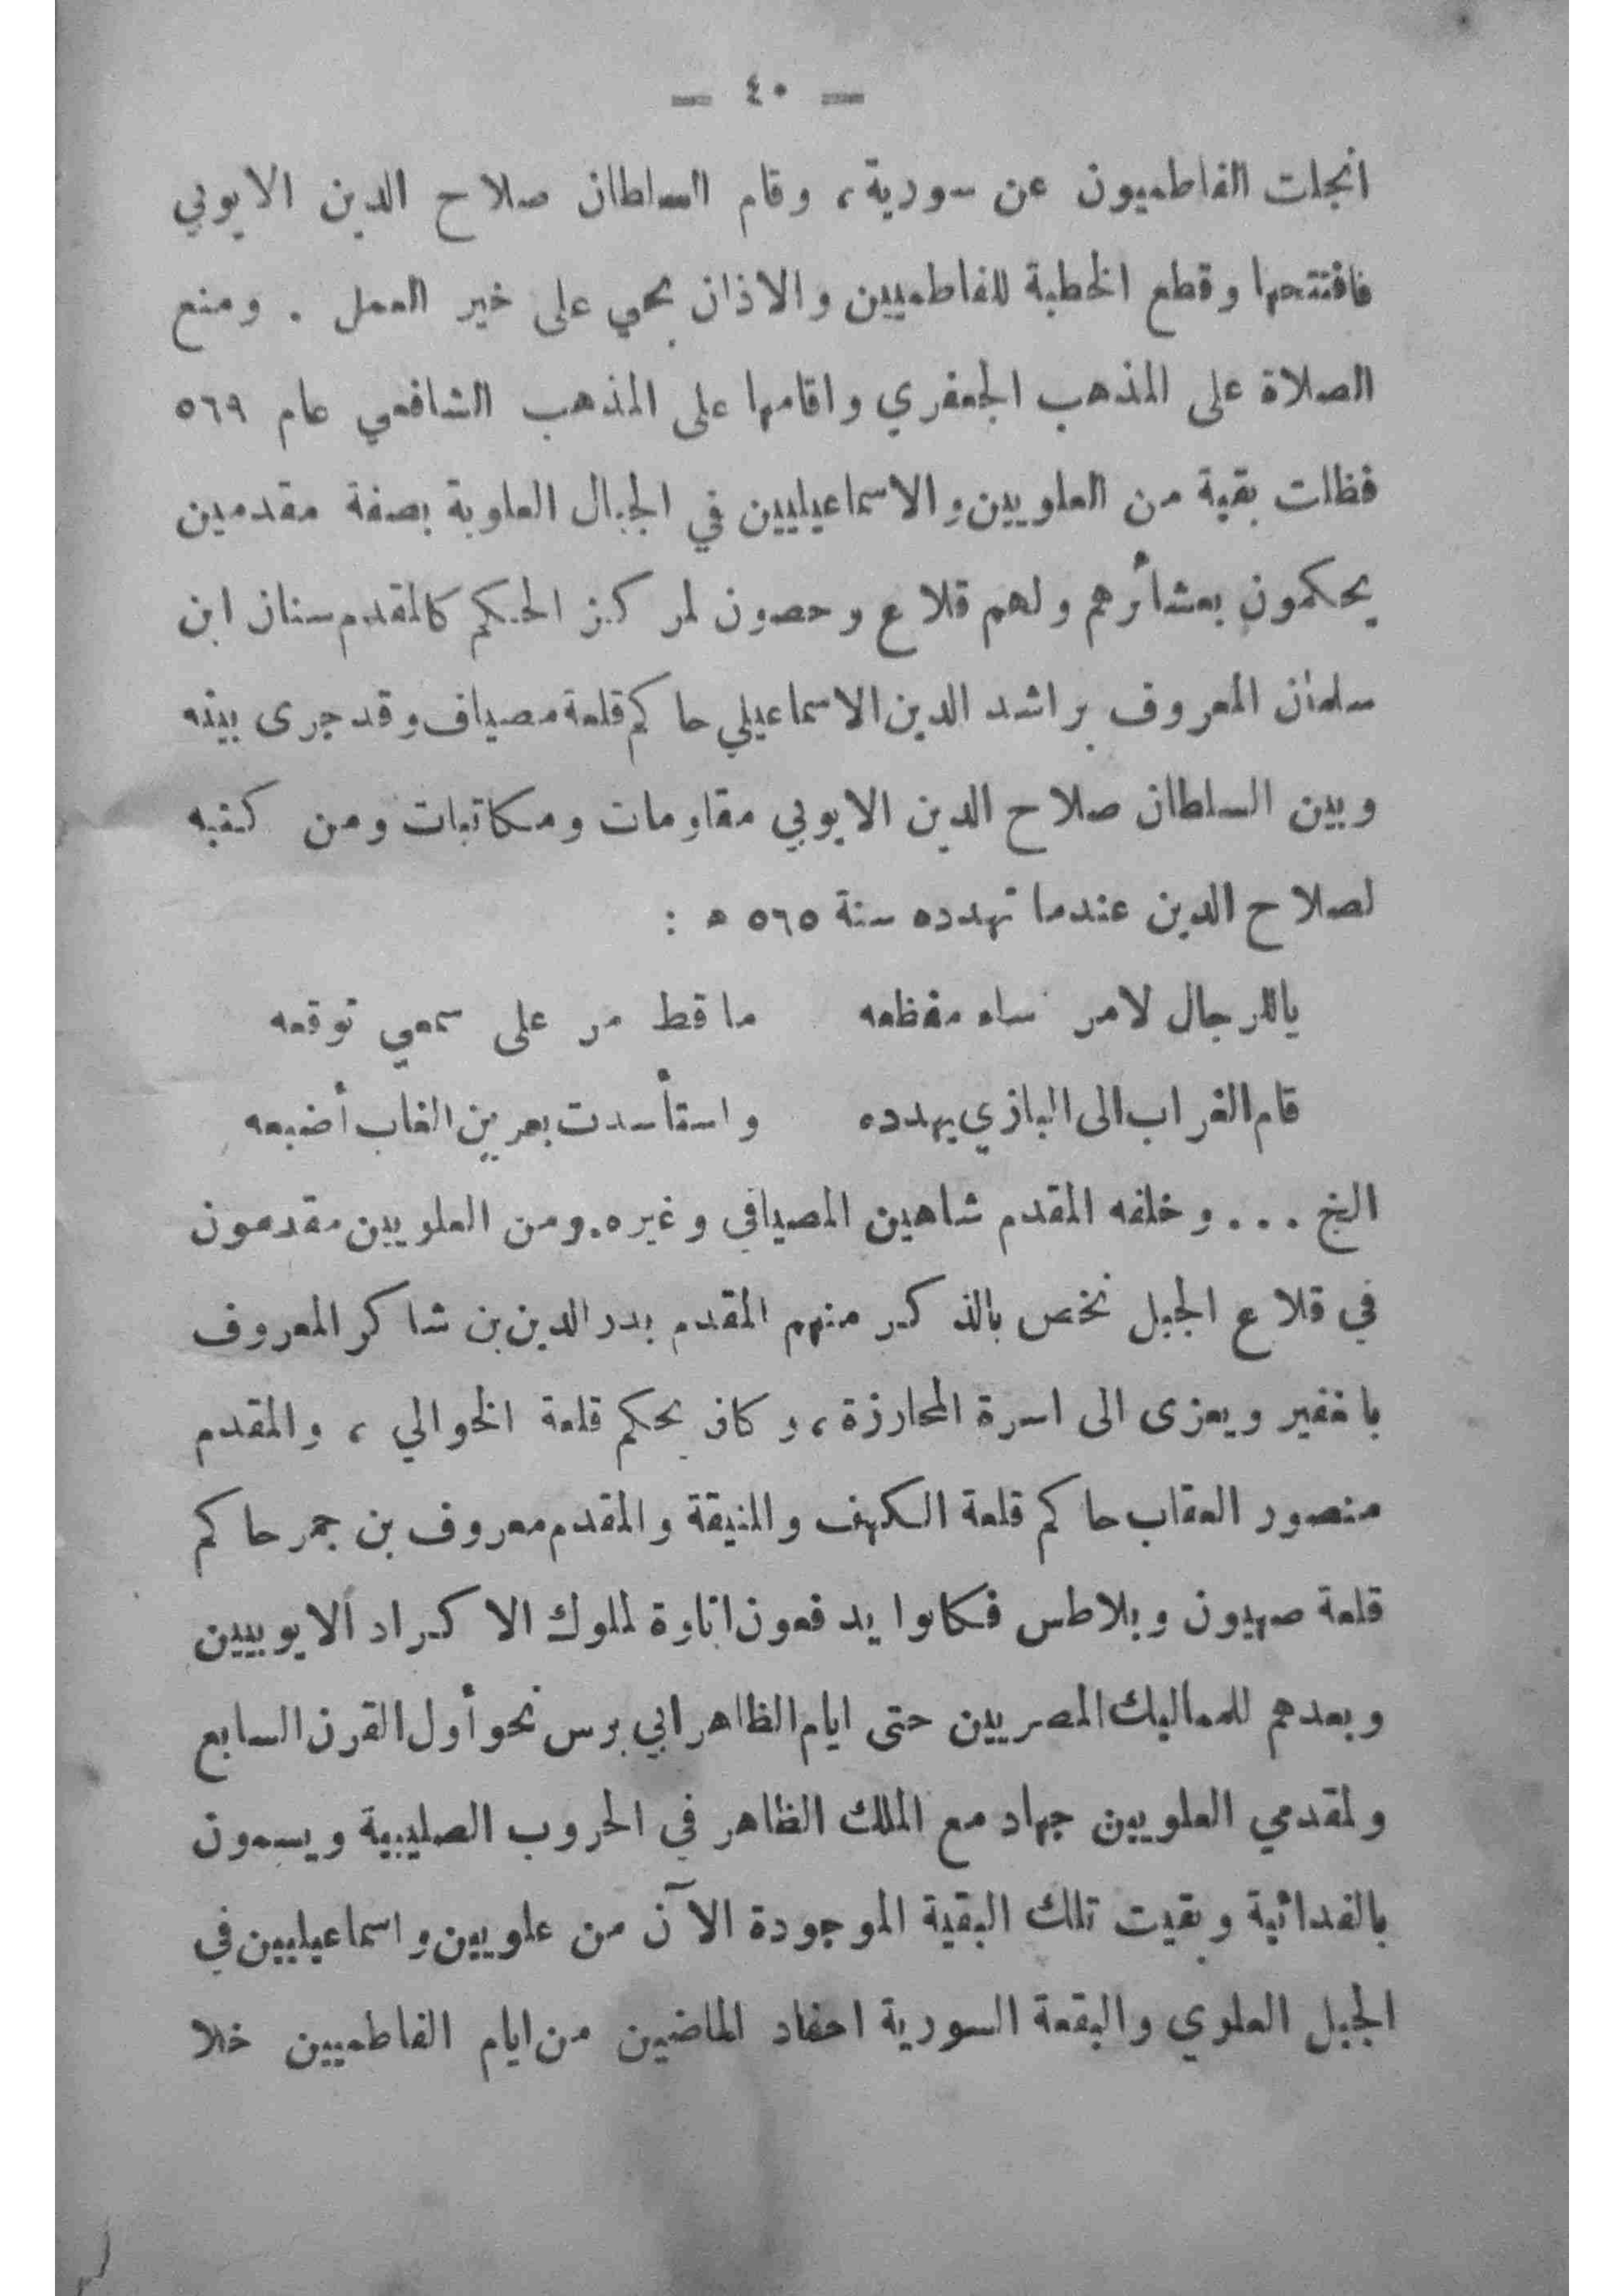 — ٤٠ —
انجلت الفاطميون عن سورية، وقام السلطان صلاح الدين الايوبي
فافتتحها وقطع الخطبة للفاطميين والاذان بحي على خير العمل . ومنع
الصلاة على المذهب الجعفري واقامها على المذهب الشافعي عام ٥٦٩
فظلت بقية من العلويين والاسماعيليين في الجبال العلوية بصفة مقدمين
يحكمون بعشائرهم ولهم قلاع وحصون لمركز الحكم كالمقدم سنان ابن
سلمان المعروف براشد الدين الاسماعيلي حاكم قلعة مصياف وقد جرى بينه
وبين السلطان صلاح الدين الايوبي مقاومات ومكاتبات ومن كتبه
لصلاح الدين عندما تهدده سنة ٥٦٥ ه :
ياللرجال لامر ساء مفظعه ما قط مر على سمعي توقعه
قام الغراب الى البازي يهدده واستأسدت بعرين الغاب أضبعه
الخ . . . وخلفه المقدم شاهين المصيافي وغيره. ومن العلويين مقدمون
في قلاع الجبل نخص بالذكر منهم المقدم بدر الدين بن شاكر المعروف
باغفير ويعزى الى اسرة المحارزة، وكان يحكم قلعة الخوالي ، والمقدم
منصور العقاب حاكم قلعة الكهف والمنيقة والمقدم معروف بن جمر حاكم
قلعة صهيون وبلاطس فكانوا يدفعون اتاوة لملوك الاكراد الايوبيين
وبعدهم للمماليك المصريين حتى ايام الظاهر ابي برس نحو أول القرن السابع
ولمقدمي العلويين جهاد مع الملك الظاهر في الحروب الصليبية ويسمون
بالفدائية وبقيت تلك البقية الموجودة الآن من علويين واسماعيليين في
الجبل العلوي والبقعة السورية احفاد الماضين من ايام الفاطميين خلا